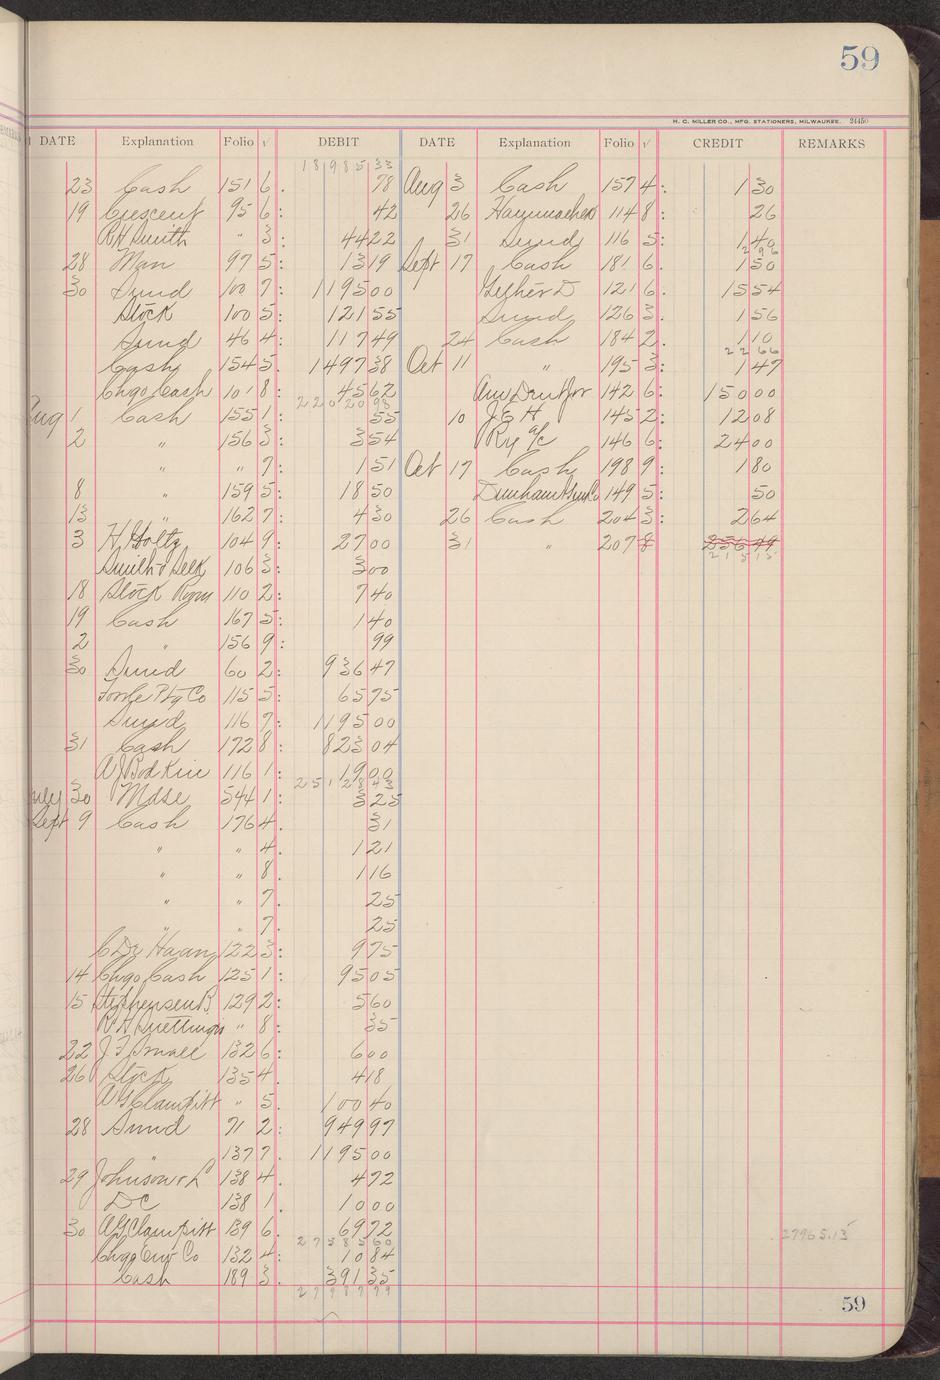 59
H. C. MILLER CO., MFG. STATIONERS, MILWAUKEE. 24450
DATE Explanation Folio √ DEBIT DATE Explanation Folio √ CREDIT REMARKS
18985 33
23 Cash 151 6. 78 Aug 3 Cash 157 4: 1 30
19 Crescent 95 6: 42 26 Haymacher 114 8: 26
R H Smith " 3: 44 22 31 Sund 116 5: 1 40
2 96
28 Man 97 5: 13 19 Sept 17 Cash 181 6. 1 50
30 Sund 100 7: 1195 00 121 6. 15 54
Stock 100 5: 121 55 Sund 126 3. 1 56
Sund 46 4: 117 49 24 Cash 184 2. 1 10
22 66
Cash 154 5: 1497 38 Oct 11 " 195 3: 1 47
Chgo Cash 101 8: 45 62 142 6: 150 00
22020 98
Aug 1 Cash 155 1: 55 10 J E H 145 2: 12 08
2 " 156 3: 3 54 Ry a/c 146 6: 24 00
" " 7: 1 51 Oct 17 Cash 198 9: 1 80
8 " 159 5: 18 50 149 5: 50
13 " 162 7: 4 30 26 Cash 204 3: 2 64
3 H. Holtz 104 9: 27 00 31 " 207 8
215 15
Smith & Selk 106 3: 3 00
18 Stock Room 110 2: 7 40
19 Cash 167 5: 1 40
2 " 156 9: 99
30 Sund 60 2: 936 47
Foote Ptg Co 115 5: 65 75
Sund 116 7: 1195 00
31 Cash 172 8: 823 04
A J Bodkin 116 1: 19 00
25128 43
July 30 Mdse 544 1: 3 25
Sept 9 Cash 176 4. 31
" " 4. 1 21
" " 8. 1 16
" " 7. 25
" " 7. 25
C De Haan 122 3: 9 75
14 Chgo Cash 125 1: 95 05
15 Stephensen B. 129 2: 5 60
" 8: 35
22 J F Small 132 6: 6 00
26 Stock 135 4: 4 18
A G Clampitt " 5. 100 40
28 Sund 71 2: 949 97
" 137 7. 1195 00
29 Johnson & L 138 4. 4 72
DC 138 1. 10 00
30 A G Clampitt 139 6. 69 72
27585 60
27965.15
Chgo Env Co 132 4: 10 84
Cash 189 3. 391 35
27987 79
59